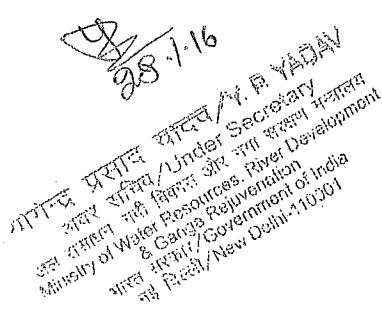 28.1.16
योगेन्द्र प्रसाद यादव/Y. P. YADAV
अवर सचिव/Under Secretary
जल संसाधन नदी विकास और गंगा संरक्षण मंत्रालय
Ministry of Water Resources, River Development
& Ganga Rejuvenation
भारत सरकार/Government of India
नई दिल्ली/New Delhi-110001